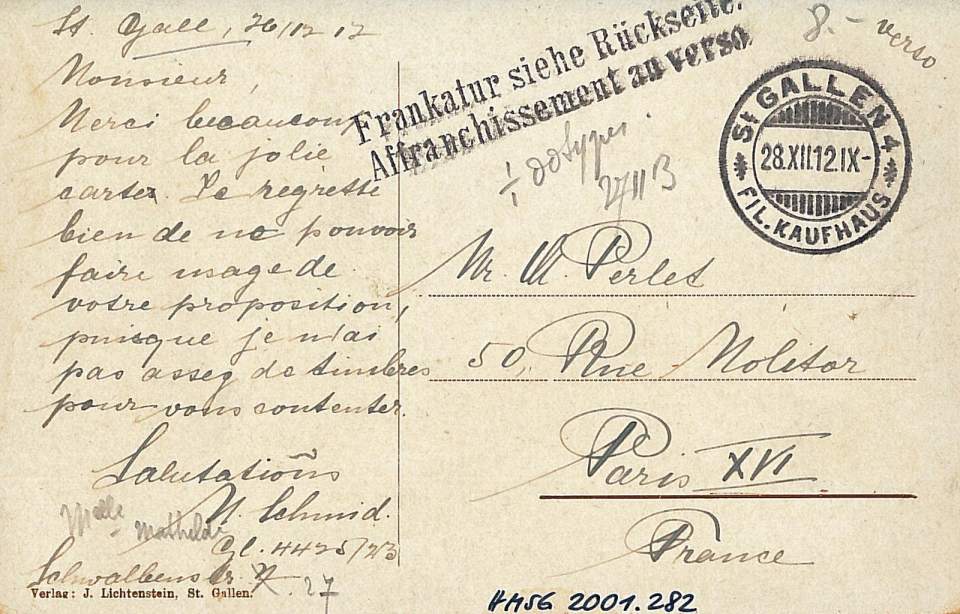 St. Gall, 26/12 12
Monsieur,
Merci beaucoup
pour la jolie
carte. Je regrette
bien de ne pouvoir
faire usage de
votre proposition,
puisque je n'ai
pas assez de timbres
pour vous contenter.
Salutations
M. Schmid.
Melle Mathilde
Gl. 4425/23
Schwalbenstr. 7. 27
Verlag: J. Lichtenstein, St. Gallen.
8.- verso
Frankatur siehe Rückseite.
Affranchissement au verso.
27 II 13
ST GALLEN 4
28.XII.12.IX-
FIL. KAUFHAUS
Mr. Perlet
50, Rue Molitor
Paris XVI
France
HM56 2001.282